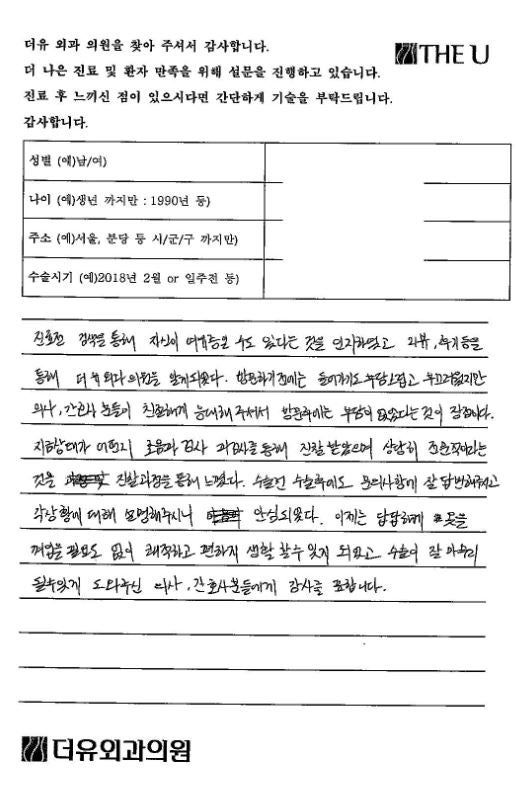 더유 외과 의원을 찾아 주셔서 감사합니다.
THE U
더 나은 진료 및 환자 만족을 위해 설문을 진행하고 있습니다.
진료 후 느끼신 점이 있으시다면 간단하게 기술을 부탁드립니다.
감사합니다.
성별 (예)남/여)
나이 (예)생년 까지만 : 1990년 등)
주소 (예)서울, 분당 등 시/군/구 까지만)
수술시기 (예)2018년 2월 or 일주전 등)
진료전 검색을 통해 자신이 여유증일 수도 있다는 것을 인지하였고 리뷰, 후기등을
통해 더유외과의원을 알게되었다. 방문하기전에는 들어가기도 부담스럽고 부끄러웠지만
의사, 간호사 분들이 친절하게 응대해주셔서 방문후에는 부담이 없었다는것이 장점이다.
지금상태가 어떤지 초음파 검사 피검사를 통해 진찰 받았으며 상당히 전문적이라는
것을 진찰과정을 통해 느꼈다. 수술전 수술후에도 문의사항에 잘 답변해주시고
각상황에 대해 설명해주시니 안심되었다. 이제는 답답하게 옷을
껴입을 필요도 없이 쾌적하고 편하게 생활 할수 있게 되었고 수술이 잘 마무리
될수있게 도와주신 의사, 간호사분들에게 감사를 표합니다.
더유외과의원